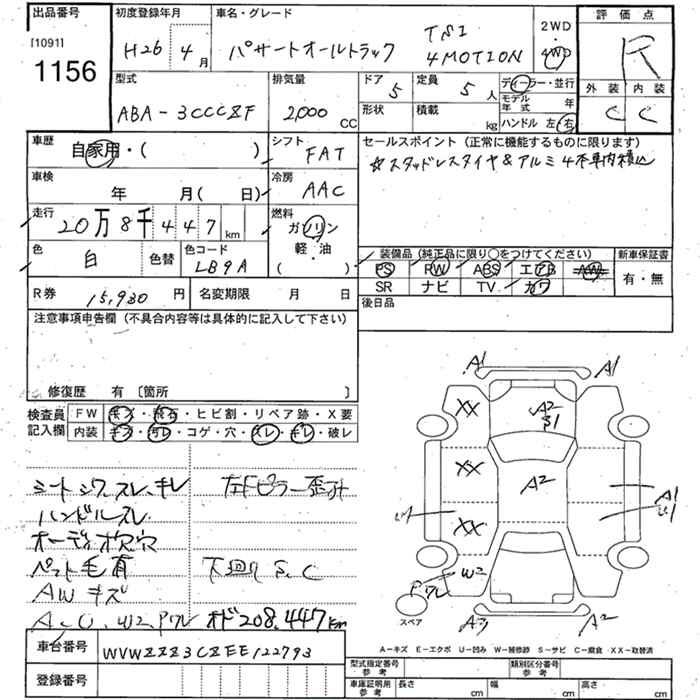 出品番号
[1091]
1156
初度登録年月
H26 4月
車名・グレード
パサートオールトラック
TSI
4MOTION
2WD
4WD
評価点
R
外装 内装
C C
型式
ABA-3CCCZF
排気量
2,000 CC
ドア
5
定員
5人
形状
積載
kg
ディーラー・並行
モデル年式 年
ハンドル 左・右
車歴
自家用・( )
シフト
FAT
セールスポイント (正常に機能するものに限ります)
☆スタッドレスタイヤ&アルミ4本車内積込
車検
年 月( 日)
冷房
AAC
走行
20万8千447km
燃料
ガソリン
軽・油
( )
色
白
色替
色コード
LB9A
装備品 (純正品に限り○をつけてください)
PS RW ABS エアB AW
SR ナビ TV カワ
新車保証書
有・無
R券
15,930円
名変期限 月 日
後日品
注意事項申告欄 (不具合内容等は具体的に記入して下さい)
修復歴 有〔箇所 〕
検査員記入欄
FW キズ・飛石・ヒビ割・リペア跡・X要
内装 キズ・汚レ・コゲ・穴・スレ・キレ・破レ
シートシワ、スレ、キレ
左Fピラー歪み
ハンドルスレ
オーディオ欠穴
ペット毛有
下廻りS、C
AWキズ
A、U、W2、Pワレ
オド208,447km
A1 A1
XX
A2
S1
XX
A2
A1
U1
XX
W2
Pワレ
スペア
A2
A-キズ E-エクボ U-凹み W-補修跡 S-サビ C-腐食 XX-取替済
車台番号
WVWZZZ3CZEE122793
登録番号
型式指定番号 参考
類別区分番号 参考
車庫証明用 参考
長さ cm
幅 cm
高さ cm